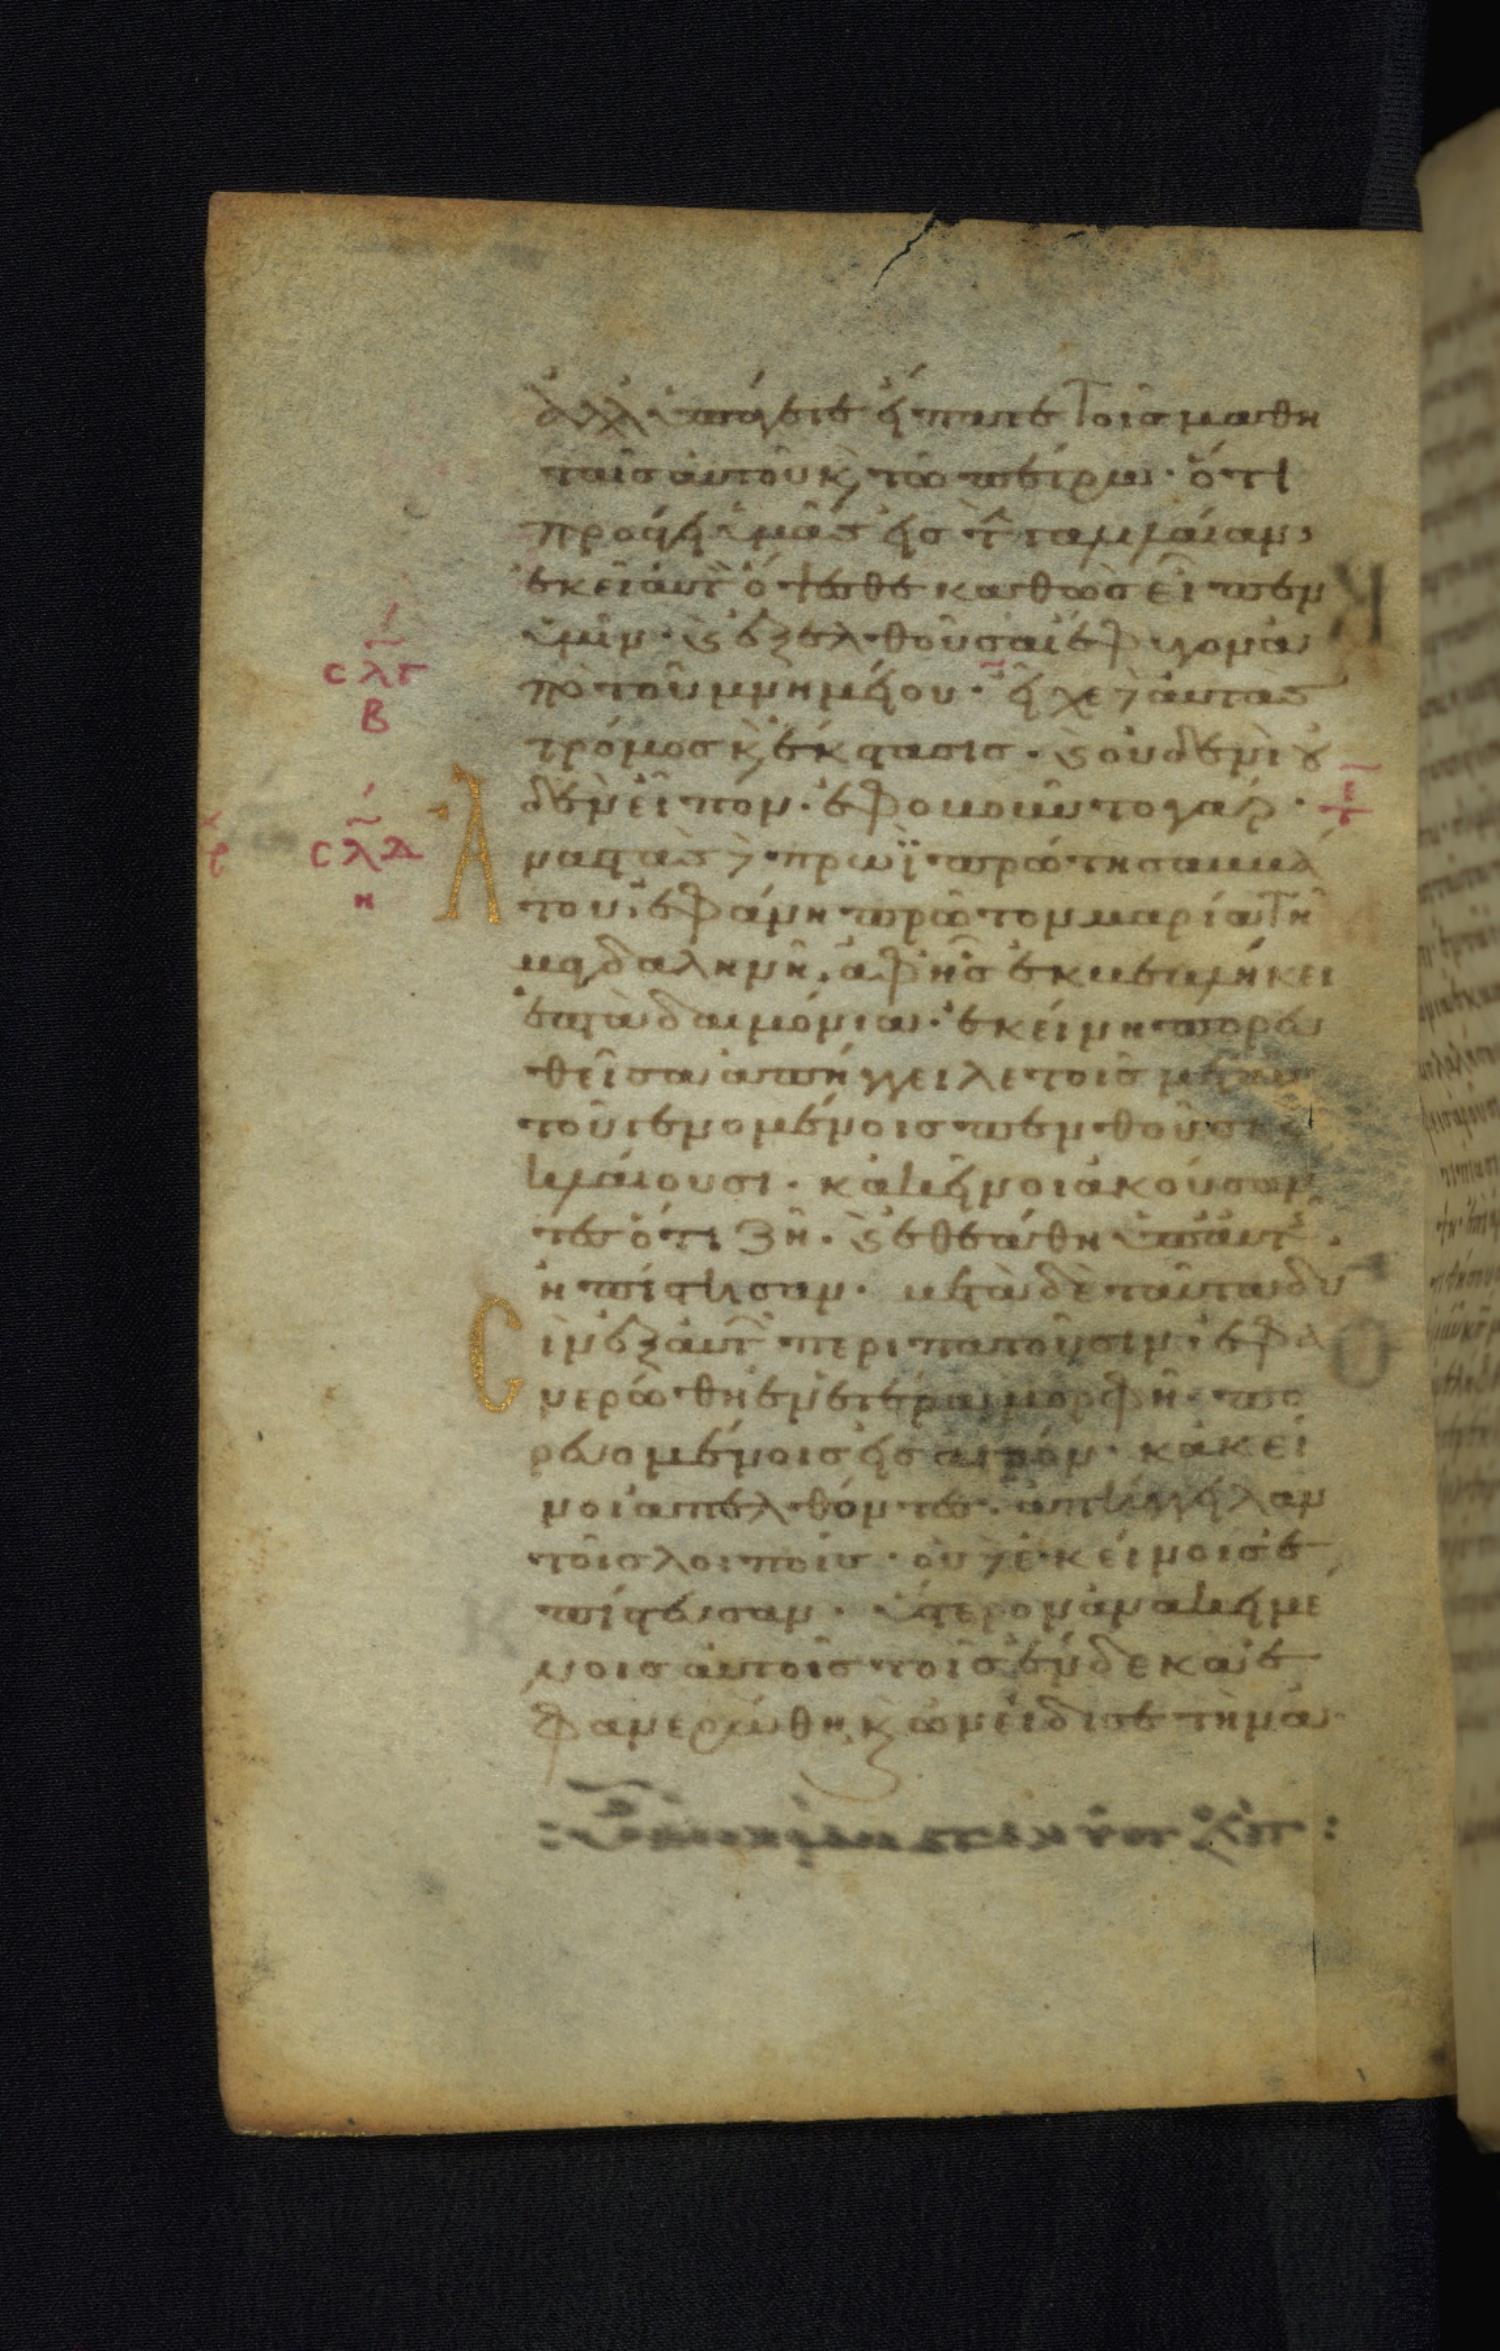 ἀλλ' ὑπάγετε εἴπατε τοῖς μαθη
ταῖς αὐτοῦ κ, τῶ πέτρω· ὅτι
προάγει ὑμᾶς εἰς τ γαλιλαίαν·
ἐκεῖ αὐτ ὄψεσθε καθὼς εἶπεν
ὑμῖν· κ ἐξελθοῦσαι ἔφυγον ἀ
πὸ τοῦ μνημείου· εἶχε δ αὐτὰς
τρόμος κ, ἔκστασις· κ οὐδενὶ οὐ
δὲν εἶπον· ἐφοβοῦντο γάρ·
σλγ
β
σλδ
η
Ἀ
ναστὰς δ πρωῒ πρώτη σαββά
του· ἐφάνη πρῶτον μαρία τῆ
μαγδαληνῆ· ἀφ' ἧς ἐκβεβλήκει
ἑπτὰ δαιμόνια· ἐκείνη πορευ
θεῖσα ἀπήγγειλε τοῖς μετ' αυ
τοῦ γενομένοις πενθοῦσι
κλαίουσι· κἀκεῖνοι ἀκούσαν
τες ὅτι ζῆ· κ ἐθεάθη ὑπ' αὐτ
ἠπίστησαν· μετὰ δὲ ταῦτα δυ
σὶν ἐξ αὐτ περιπατοῦσιν ἐφα
νερώθη ἐν ἑτέρα μορφῆ· πο
ρευομένοις εἰς ἀγρόν· κἀκεῖ
νοι ἀπελθόντες· ἀπήγγειλαν
τοῖς λοιποῖς· οὐδὲ κείνοις ἐ
πίστευσαν· ὕστερον ἀνακειμέ
νοις αὐτοῖς τοῖς ἕνδεκα ἐ
φανερώθη, κ ὠνείδισε τὴν ἀ